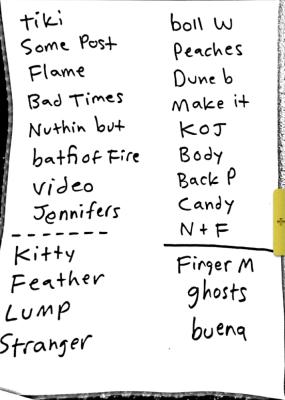 tiki
Some Post
Flame
Bad Times
Nuthin but
bath of Fire
video
Jennifers
Kitty
Feather
LUMP
Stranger
boll W
Peaches
Dune b
Make it
KOJ
Body
Back P
Candy
N + F
Finger M
ghosts
buena